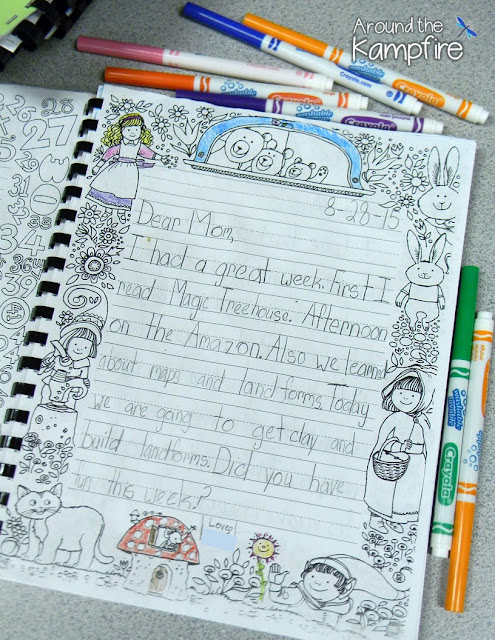 Around the
Kampfire
8-28-15
Dear Mom,
I had a great week. First I
read Magic Treehouse: Afternoon
on the Amazon. Also we learned
about maps and landforms. Today
we are going to get clay and
build landforms. Did you have
fun this week?
Love,
Crayola
Crayola
Crayola
Crayola
Crayola
washable
Crayola
washable